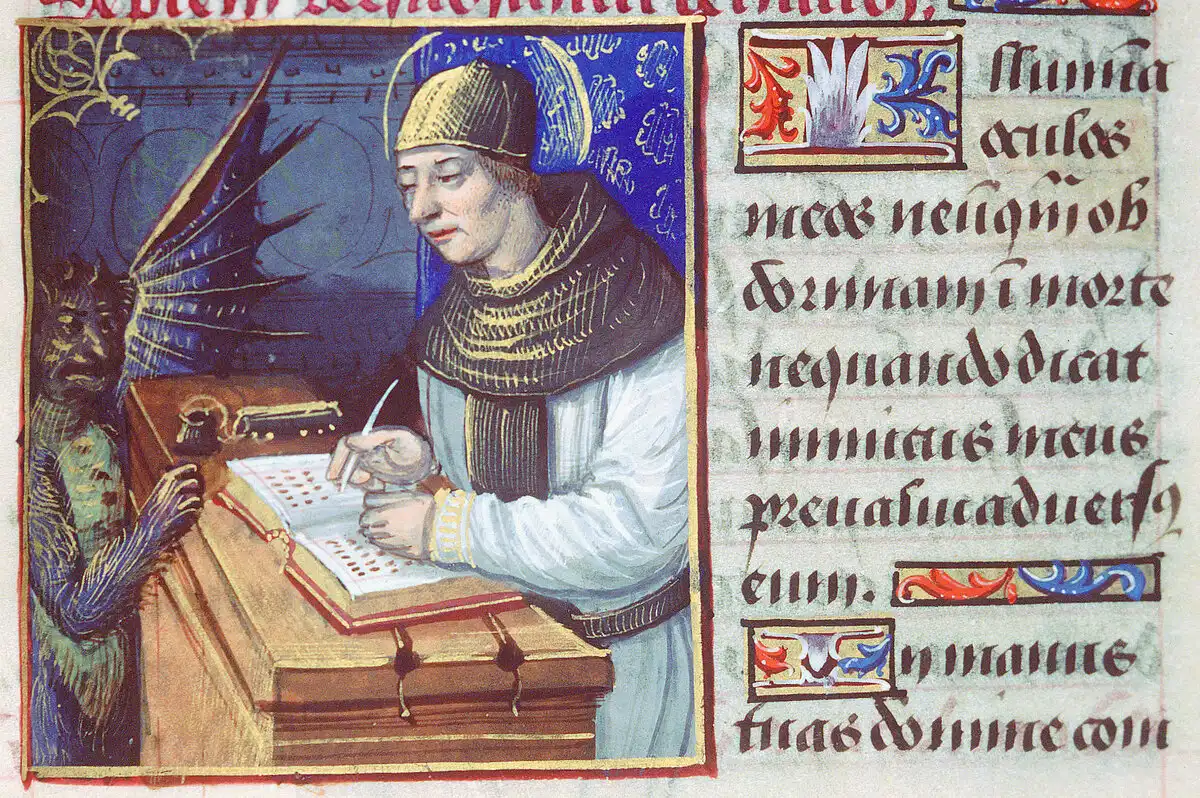 Illumīa
oculos
meos neūq̄m̄ ob
dormiam ī morte
nequando dicat
inimicus meus
preualui aduersꝰ
eum.
In manus
tuas domine com